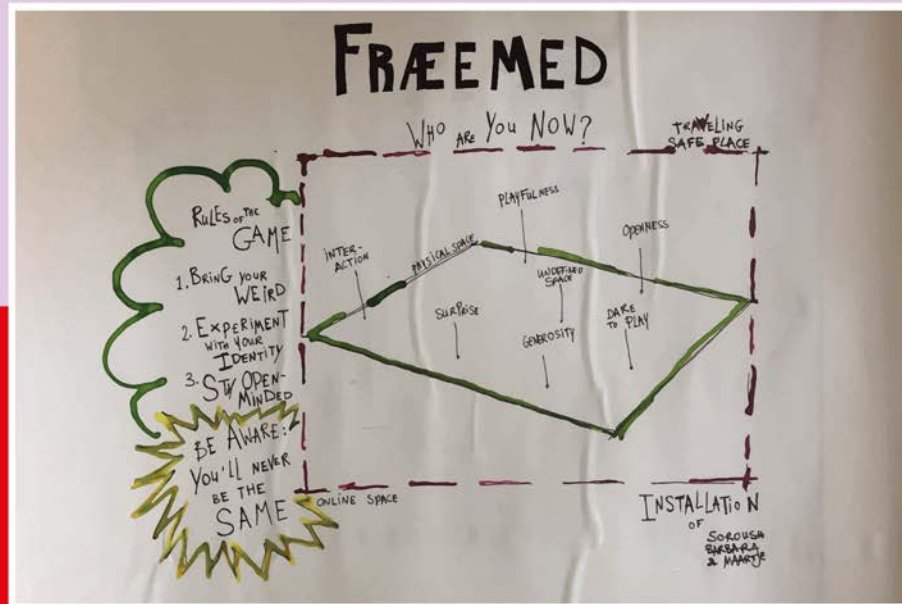 FRÆEMED
WHO ARE YOU NOW?
TRAVELING
SAFE PLACE
RULES OF THE
GAME
1. BRING YOUR
WEIRD
2. EXPERIMENT
WITH YOUR
IDENTITY
3. STY OPEN-
MINDED
BE AWARE:
YOU'LL NEVER
BE THE
SAME
INTER-
ACTION
PHYSICAL SPACE
PLAYFULNESS
OPENNESS
UNDEFINED
SPACE
SURPRISE
GENEROSITY
DARE
TO PLAY
ONLINE SPACE
INSTALLATION
OF
SOROUSH
BARBARA
& MAARTJE